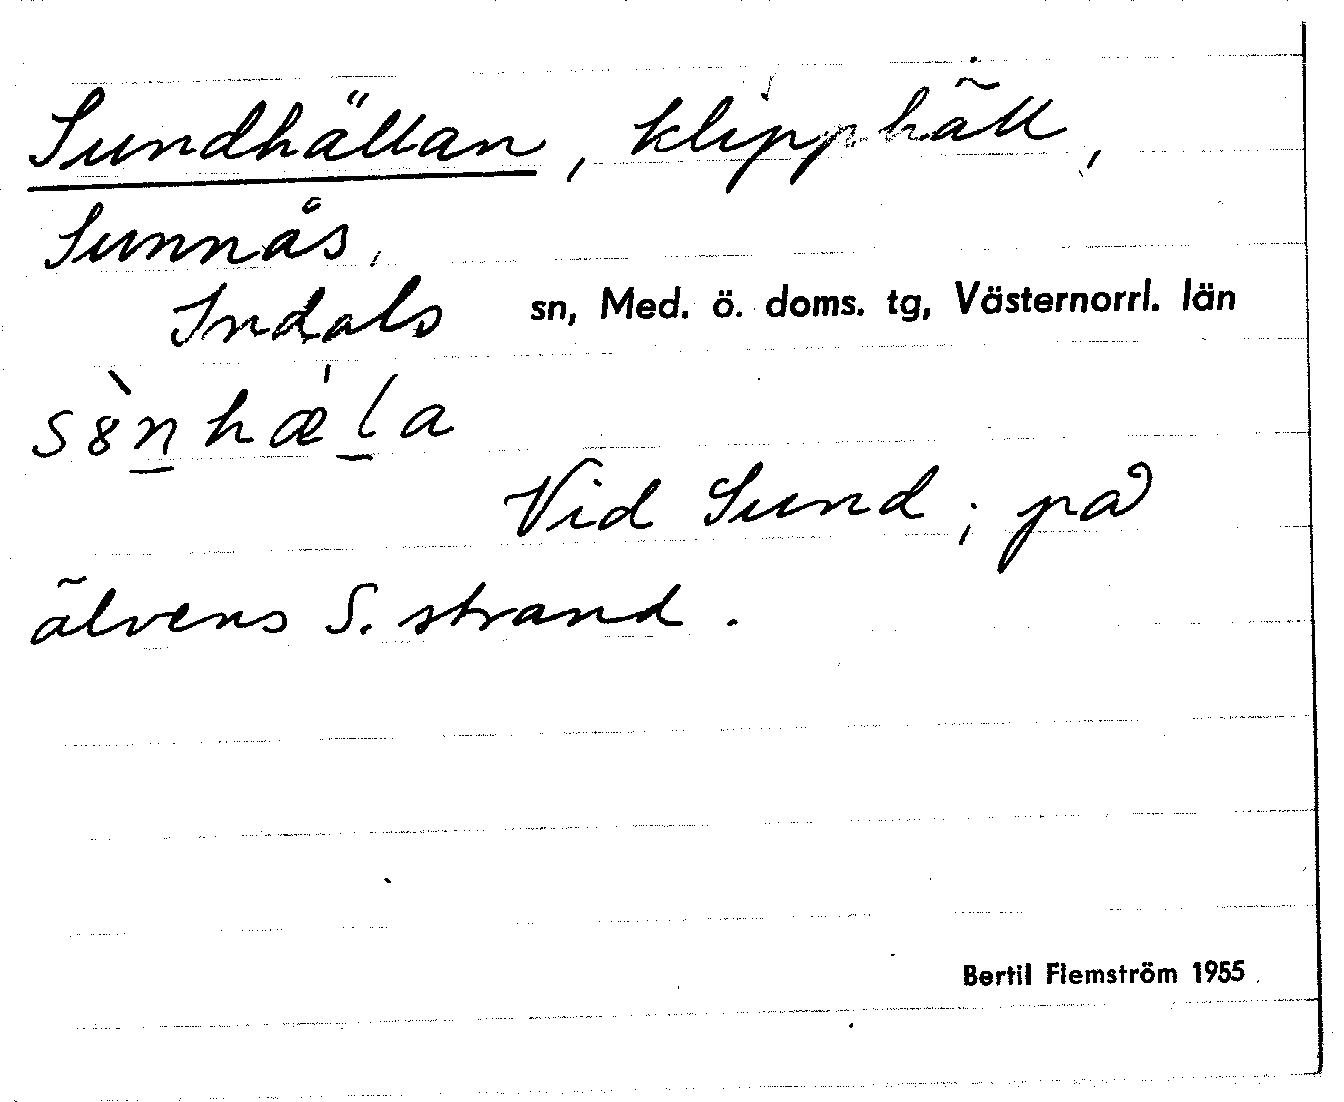 Sundhällan, klipphäll,
Sunnås,
Indals sn, Med. ö. doms. tg, Västernorrl. län
s8̀n̲hæ̍l̲a
Vid Sund; på
älvens S. strand.
Bertil Flemström 1955